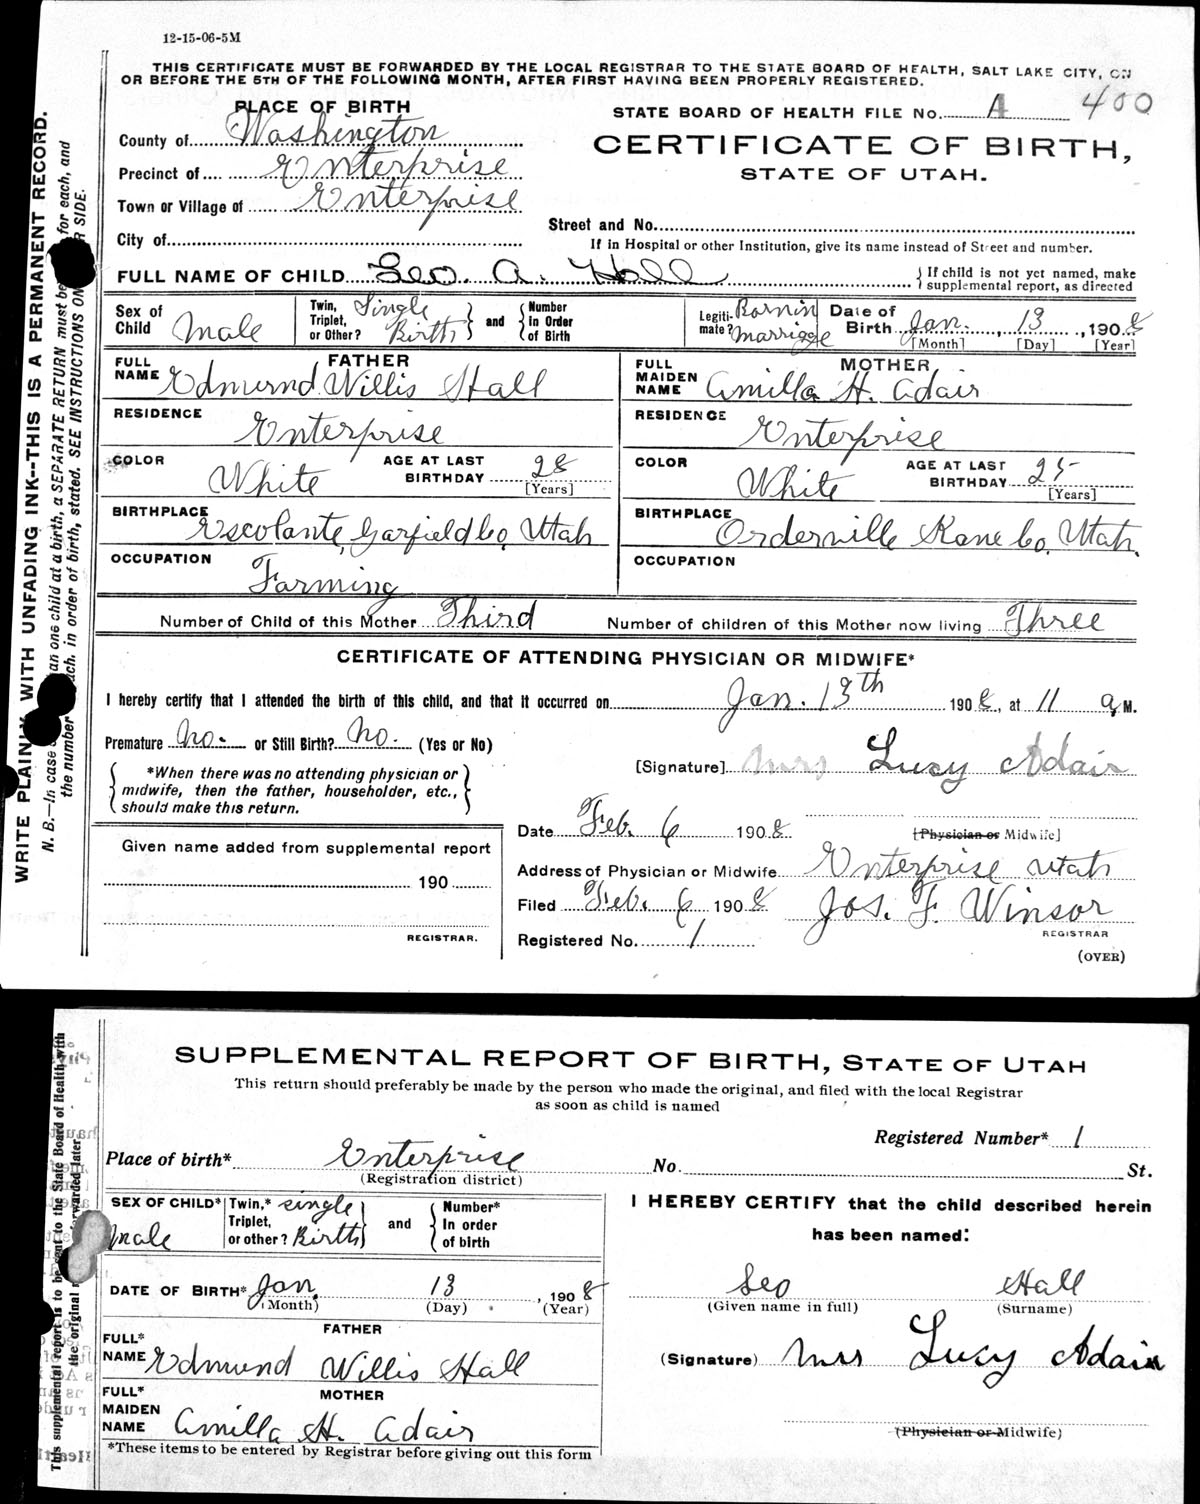 12-15-06-5M
THIS CERTIFICATE MUST BE FORWARDED BY THE LOCAL REGISTRAR TO THE STATE BOARD OF HEALTH, SALT LAKE CITY, ON
OR BEFORE THE 5TH OF THE FOLLOWING MONTH, AFTER FIRST HAVING BEEN PROPERLY REGISTERED.
PLACE OF BIRTH
STATE BOARD OF HEALTH FILE No. A 400
County of Washington
CERTIFICATE OF BIRTH,
STATE OF UTAH.
Precinct of Enterprise
Town or Village of Enterprise
Street and No.
City of
If in Hospital or other Institution, give its name instead of Street and number.
FULL NAME OF CHILD Leo. A. Hall
{If child is not yet named, make
supplemental report, as directed
Sex of Child Male
Twin, Triplet, or Other? Single Birth
and
Number in Order of Birth
Legiti-mate? Born in marriage
Date of Birth Jan. 13, 1908
[Month] [Day] [Year]
FATHER
FULL NAME Edmund Willis Hall
MOTHER
FULL MAIDEN NAME Amilla H. Adair
RESIDENCE Enterprise
RESIDENCE Enterprise
COLOR White
AGE AT LAST BIRTHDAY 28
[Years]
COLOR White
AGE AT LAST BIRTHDAY 25
[Years]
BIRTHPLACE Escolante, Garfield Co, Utah
BIRTHPLACE Orderville Kane Co, Utah.
OCCUPATION Farming
OCCUPATION
Number of Child of this Mother Third
Number of children of this Mother now living Three
CERTIFICATE OF ATTENDING PHYSICIAN OR MIDWIFE*
I hereby certify that I attended the birth of this child, and that it occurred on Jan. 13th 1908, at 11 a, M.
Premature No. or Still Birth? No. (Yes or No)
*When there was no attending physician or
midwife, then the father, householder, etc.,
should make this return.
[Signature] Mrs Lucy Adair
Date Feb. 6 1908
[Physician or Midwife]
Given name added from supplemental report
Address of Physician or Midwife Enterprise Utah
190
Filed Feb. 6 1908 Jos. F. Winsor
REGISTRAR.
REGISTRAR
Registered No. 1
(OVER)
WRITE PLAINLY WITH UNFADING INK--THIS IS A PERMANENT RECORD.
N. B.—In case an one child at a birth, a SEPARATE RETURN must be for each, and
the number ach, in order of birth, stated. SEE INSTRUCTIONS ON R SIDE.
SUPPLEMENTAL REPORT OF BIRTH, STATE OF UTAH
This return should preferably be made by the person who made the original, and filed with the local Registrar
as soon as child is named
Registered Number* 1
Place of birth* Enterprise
No. St.
(Registration district)
SEX OF CHILD* Male
Twin,* Triplet, or other? single Birth
and
Number* In order of birth
I HEREBY CERTIFY that the child described herein
has been named:
DATE OF BIRTH* Jan. 13, 1908
(Month) (Day) (Year)
Leo Hall
(Given name in full) (Surname)
FATHER
FULL* NAME Edmund Willis Hall
(Signature) Mrs Lucy Adair
MOTHER
FULL* MAIDEN NAME Amilla H. Adair
(Physician or Midwife)
*These items to be entered by Registrar before giving out this form
This supplemental report is to be sent to the State Board of Health with
the original forwarded later